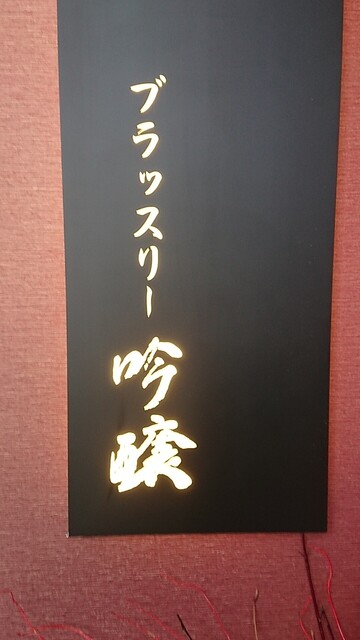 ブラッスリー 吟醸